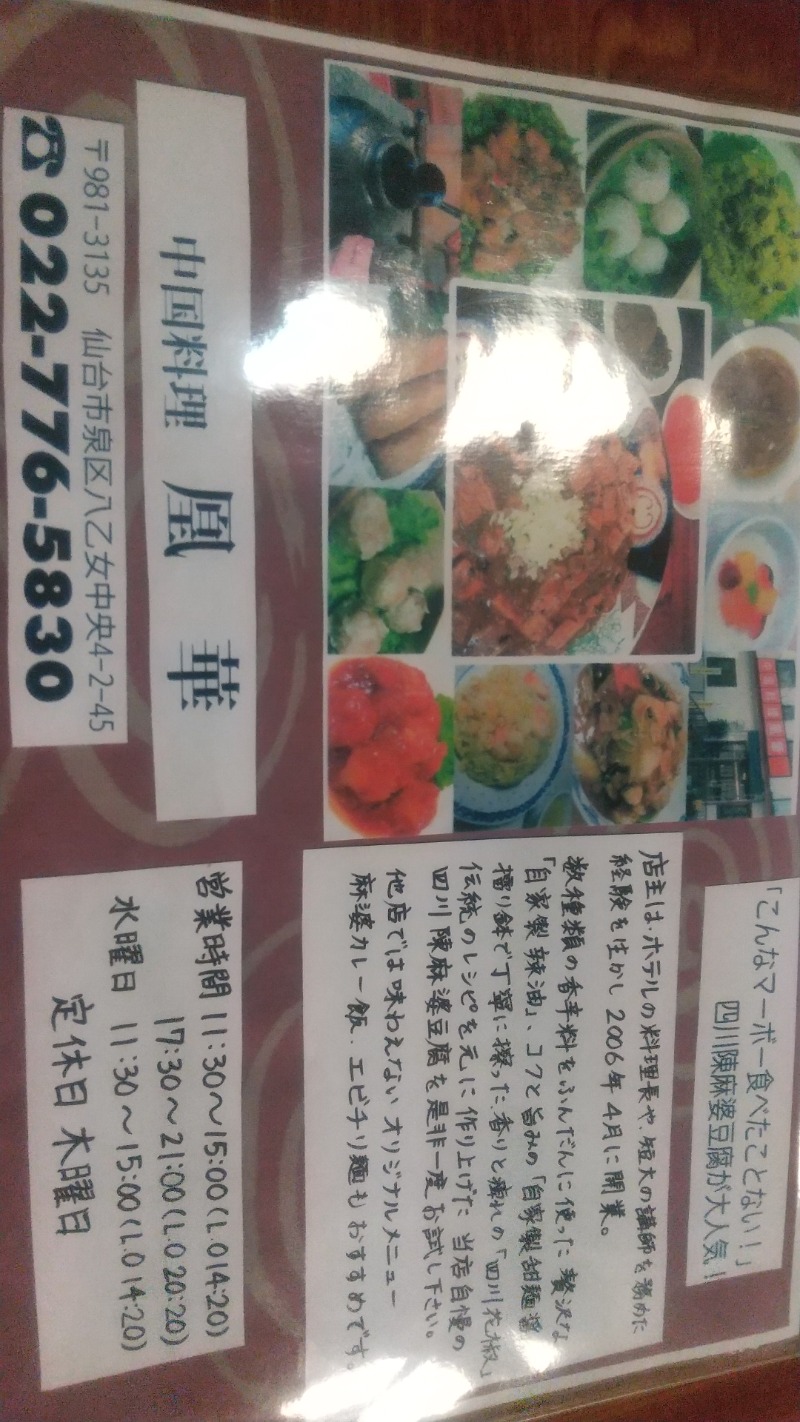 「こんなマーボー食べたことない！」
四川陳麻婆豆腐が大人気！
店主は、ホテルの料理長や、短大の講師を務めた
経験を生かし2006年4月に開業。
数種類の香辛料をふんだんに使った贅沢な
「自家製辣油」、コクと旨みの「自家製甜麺醤」
擂り鉢で丁寧に擦った香りと痺れの「四川花椒」
伝統のレシピを元に作り上げた当店自慢の
四川陳麻婆豆腐を是非一度お試し下さい。
他店では味わえないオリジナルメニュー
麻婆カレー飯、エビチリ麺もおすすめです。
中国料理 凰華
〒981-3135 仙台市泉区八乙女中央4-2-45
☎022-776-5830
営業時間 11:30〜15:00(L.O14:20)
17:30〜21:00(L.O20:20)
水曜日 11:30〜15:00(L.O14:20)
定休日 木曜日